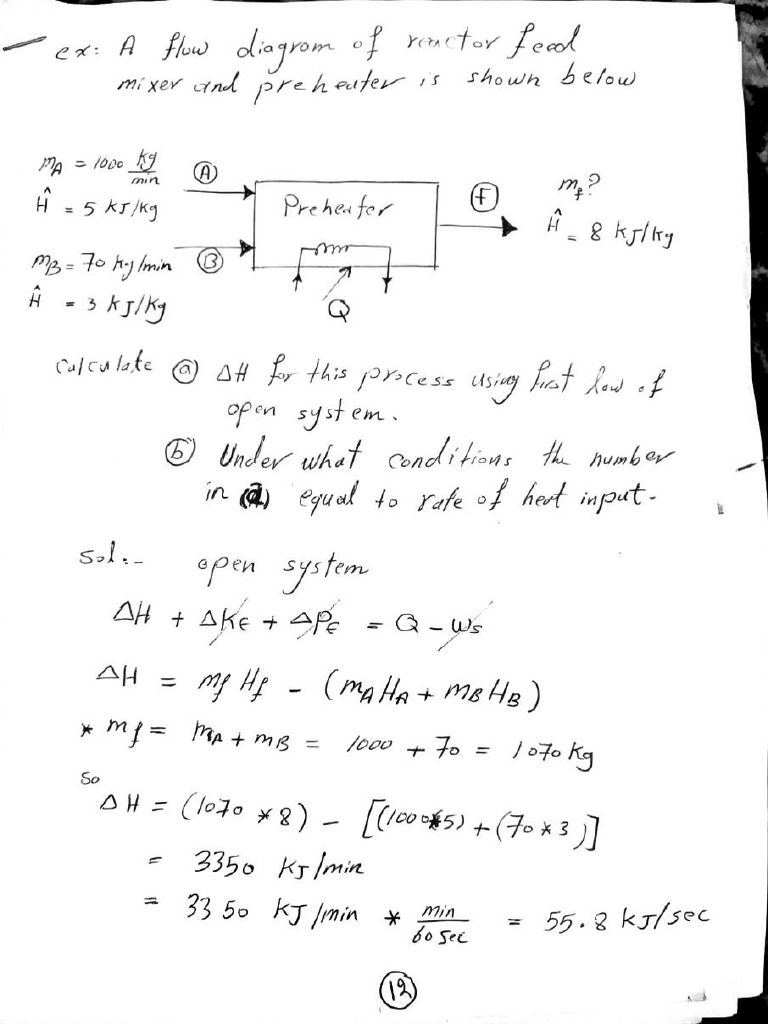 ex: A flow diagram of reactor feed
mixer and preheater is shown below
mA = 1000 kg/min
Ĥ = 5 kJ/kg
A
mB = 70 kg/min
Ĥ = 3 kJ/kg
B
Preheater
Q
F
mf?
Ĥ = 8 kJ/kg
Calculate ⓐ ΔH for this process using first law of
open system.
ⓑ Under what conditions the number
in (a) equal to rate of heat input.
Sol:- open system
ΔH + ΔKE + ΔPE = Q - Ws
ΔH = mf Hf - (mA HA + mB HB)
* mf = mA + mB = 1000 + 70 = 1070 kg
So
ΔH = (1070 * 8) - [(1000*5) + (70*3)]
= 3350 kJ/min
= 3350 kJ/min * min/60 sec = 55.8 kJ/sec
12